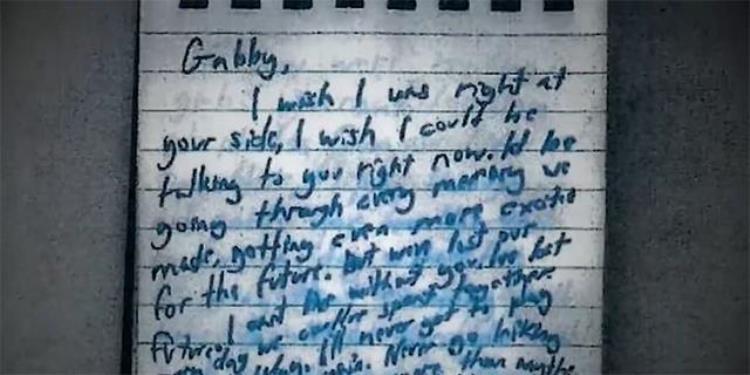 Gabby,
I wish I was right at
your side, I wish I could be
talking to you right now. Id be
going through every memory we
made, getting even more excited
for the future. But weve lost our
future. I cant live without you. Ive lost
every day we couldve spent together
I'll never get to play
again. Never go hiking
more than anything